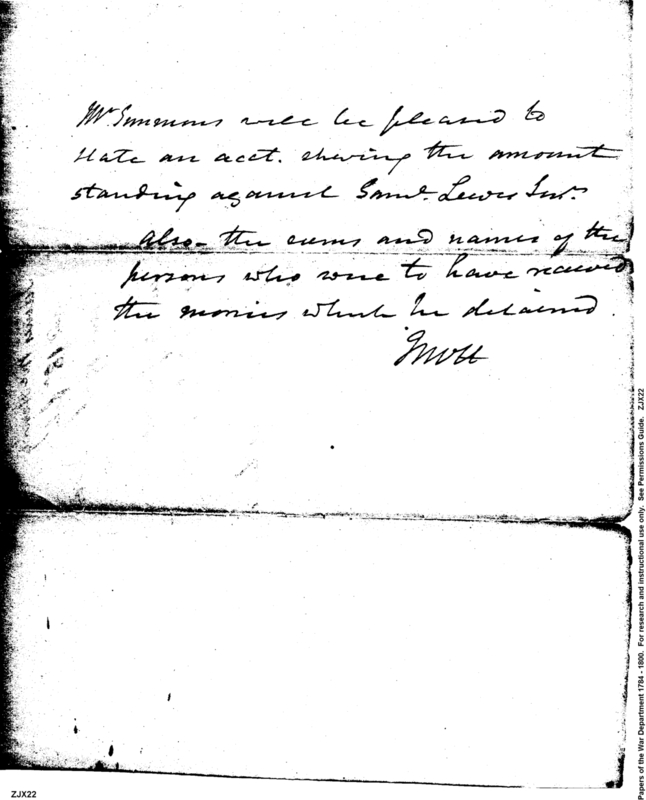 Mr. Simmons will be pleased to
state an acct. shewing the amount
standing against Saml. Lewis Junr.
also - the sums and names of the
persons who were to have received
the monies which he detained.
ZJX22
Papers of the War Department 1784 - 1800. For research and instructional use only. See Permissions Guide. ZJX22